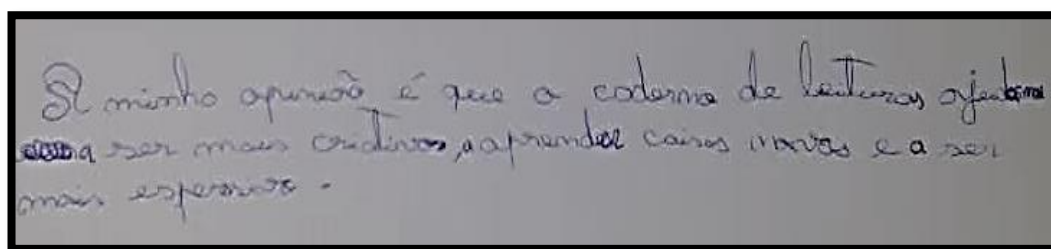 A minha opinião é que o caderno de leituras ajuda-me
a ser mais criativos, a aprender coisas novas e a ser
mais